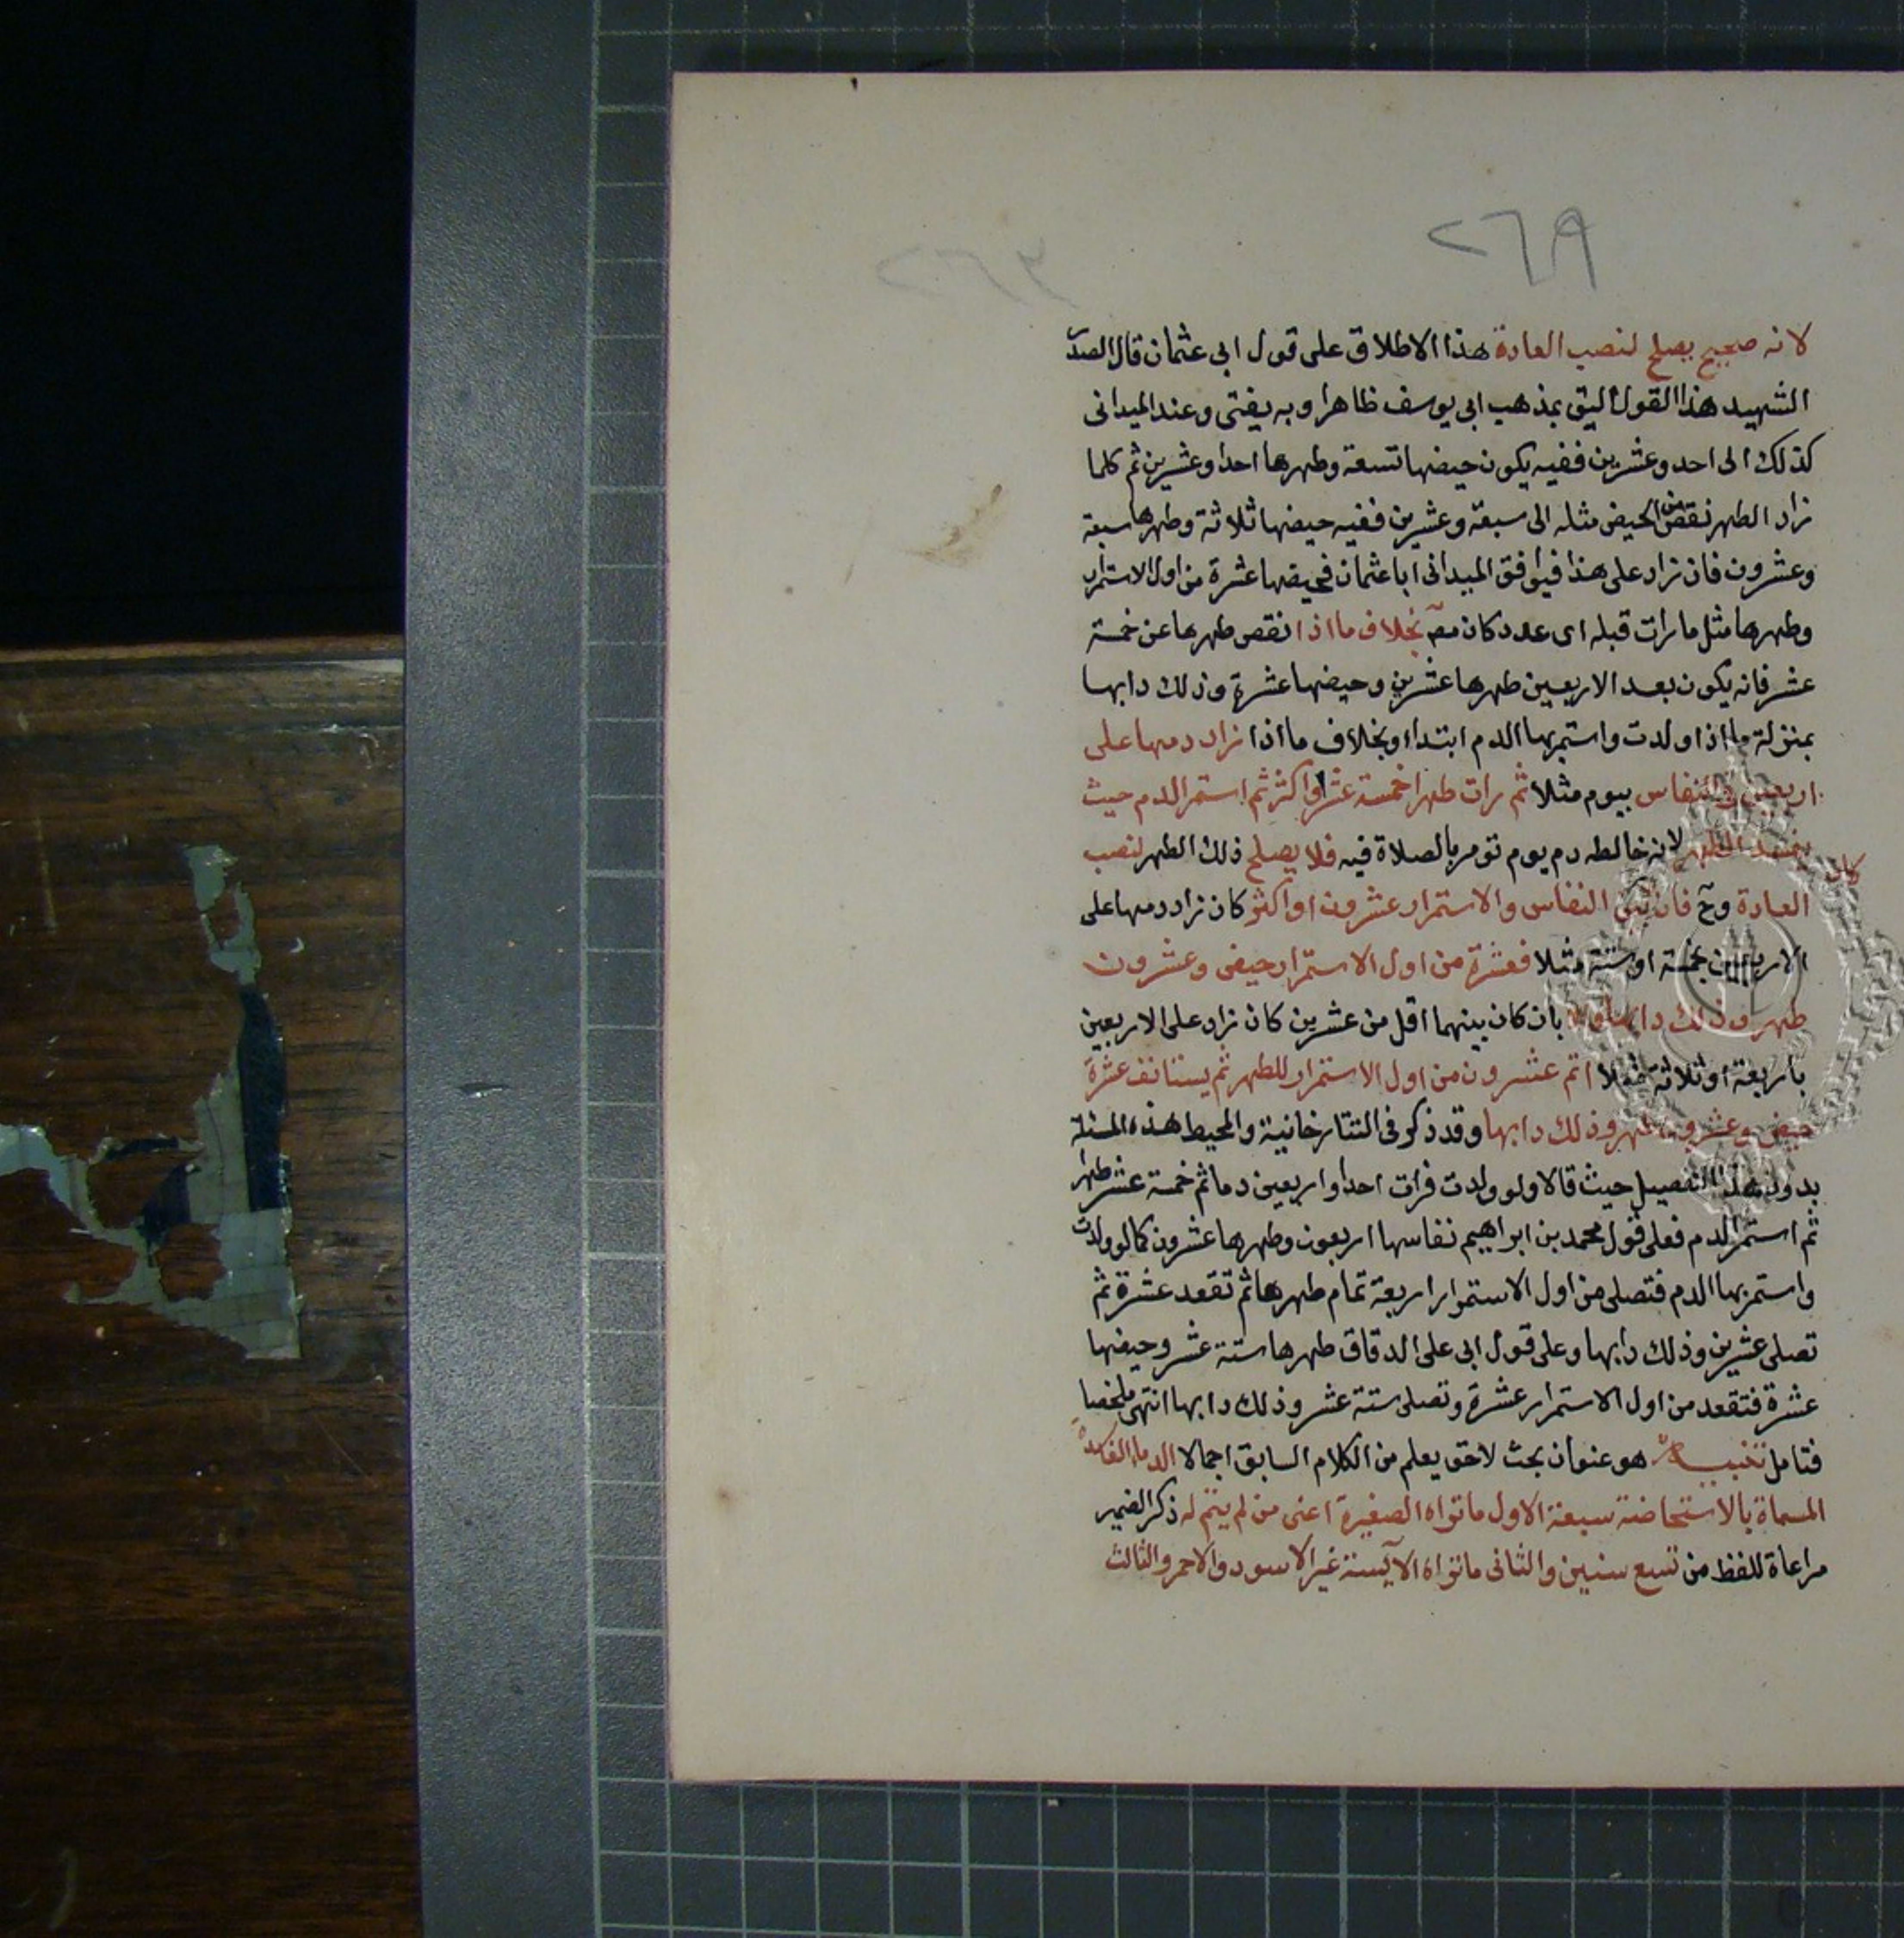 ٢٦٩
٢٦٣
لانه صحيح يصلح لنصب العادة هذا الاطلاق على قول ابى عثمان قال الصدر
الشهيد هذا القول اليق بمذهب ابى يوسف ظاهرا وبه يفتى وعند الميدانى
كذلك الى احد وعشرين ففيه يكون حيضها تسعة وطهرها احدا وعشرين ثم كلما
زاد الطهر نقص من الحيض مثله الى سبعة وعشرين ففيه حيضها ثلاثة وطهرها سبعة
وعشرون فان زاد على هذا فيوافق الميدانى ابا عثمان فحيضها عشرة من اول الاستمرار
وطهرها مثل ما رات قبله اى عدد كان مصـ بخلاف ما اذا نقص طهرها عن خمسة
عشر فانه يكون بعد الاربعين طهرها عشرين وحيضها عشرة وذلك دابها
بمنزلة ما اذا ولدت واستمر بها الدم ابتداء وبخلاف ما اذا زاد دمها على
اربعين فى النفاس بيوم مثلا ثم رات طهرا خمسة عشر او اكثر ثم استمر الدم حيث
يفسد الطهر لانه خالطه دم يوم تومر بالصلاة فيه فلا يصلح ذلك الطهر لنصب
كان
العادة وح فان بين النفاس والاستمرار عشرون او اكثر كان زاد دمها على
الاربعين بخمسة او ستة مثلا فعشرة من اول الاستمرار حيض وعشرون
طهر وذلك دابها والا بان كان بينهما اقل من عشرين كان زاد على الاربعين
باربعة او ثلاثة مثلا اتم عشرون من اول الاستمرار للطهر ثم يستانف عشرة
حيض وعشرون طهر وذلك دابها وقد ذكر فى التتارخانية والمحيط هذه المسئلة
بدون هذا التفصيل حيث قالا ولو ولدت فرات احدا واربعين دما ثم خمسة عشر طهرا
ثم استمر الدم فعلى قول محمد بن ابراهيم نفاسها اربعون وطهرها عشرون كما لو ولدت
واستمر بها الدم فتصلى من اول الاستمرار اربعة تمام طهرها ثم تقعد عشرة ثم
تصلى عشرين وذلك دابها وعلى قول ابى على الدقاق طهرها ستة عشر وحيضها
عشرة فتقعد من اول الاستمرار عشرة وتصلى ستة عشر وذلك دابها انتهى ملخصا
فتامل تنبيه هو عنوان بحث لاحق يعلم من الكلام السابق اجمالا الدماء الفاسدة
المسماة بالاستحاضة سبعة الاول ما تراه الصغيرة اعنى من لم يتم له ذكر الضمير
مراعاة للفظ من تسع سنين والثانى ما تراه الآيسة غير الاسود والاحمر والثالث